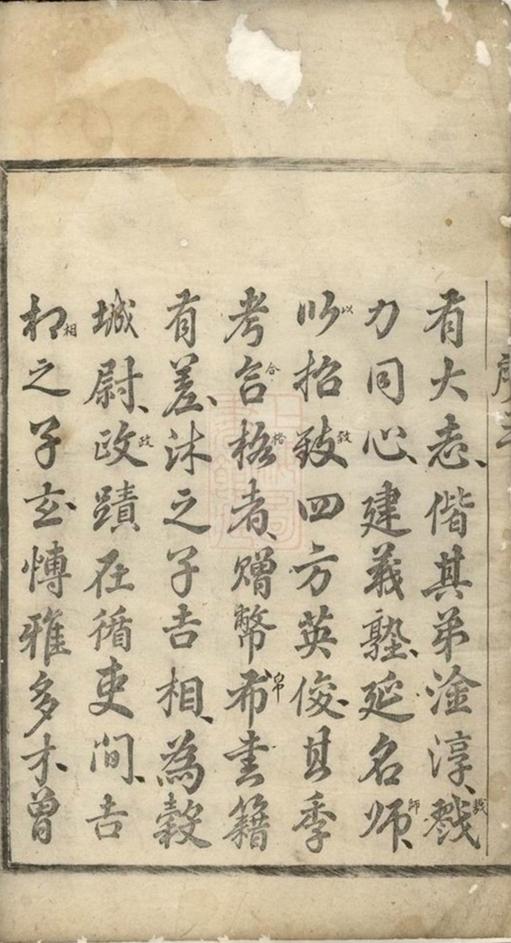 有大志偕其弟淦淳戮
力同心建義塾延名师
以招致四方英俊其季
考合格者赠幣布書籍
有差沐之子吉相為穀
城尉政蹟在循吏間吉
相之子玄愽雅多才曾